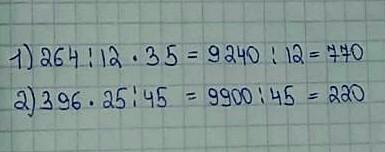 1) 264 : 12 · 35 = 9240 : 12 = 770
2) 396 · 25 : 45 = 9900 : 45 = 220